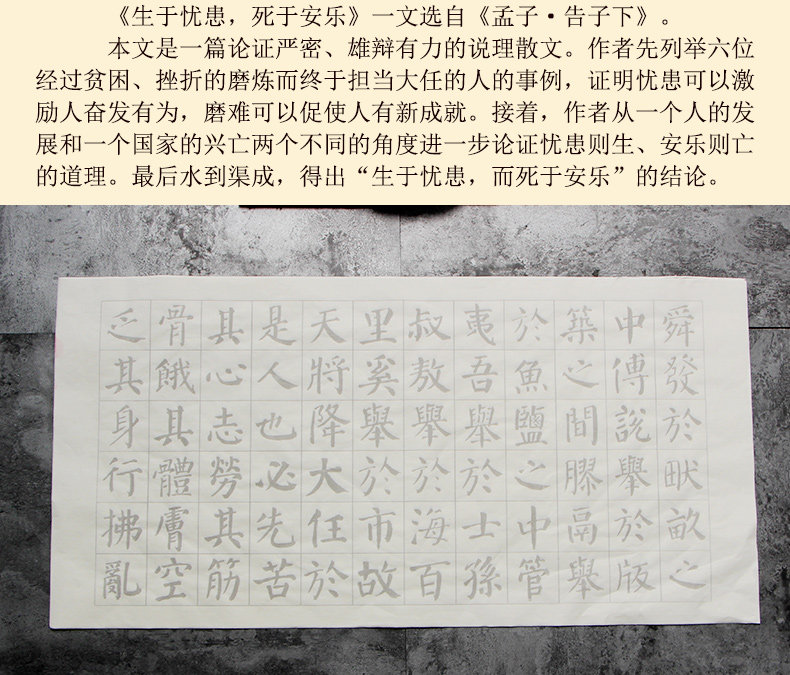 《生于忧患，死于安乐》一文选自《孟子·告子下》。
本文是一篇论证严密、雄辩有力的说理散文。作者先列举六位
经过贫困、挫折的磨炼而终于担当大任的人的事例，证明忧患可以激
励人奋发有为，磨难可以促使人有新成就。接着，作者从一个人的发
展和一个国家的兴亡两个不同的角度进一步论证忧患则生、安乐则亡
的道理。最后水到渠成，得出“生于忧患，而死于安乐”的结论。
舜發於畎畝之
中傅說舉於版
築之間膠鬲舉
於魚鹽之中管
夷吾舉於士孫
叔敖舉於海百
里奚舉於市故
天將降大任於
是人也必先苦
其心志勞其筋
骨餓其體膚空
乏其身行拂亂